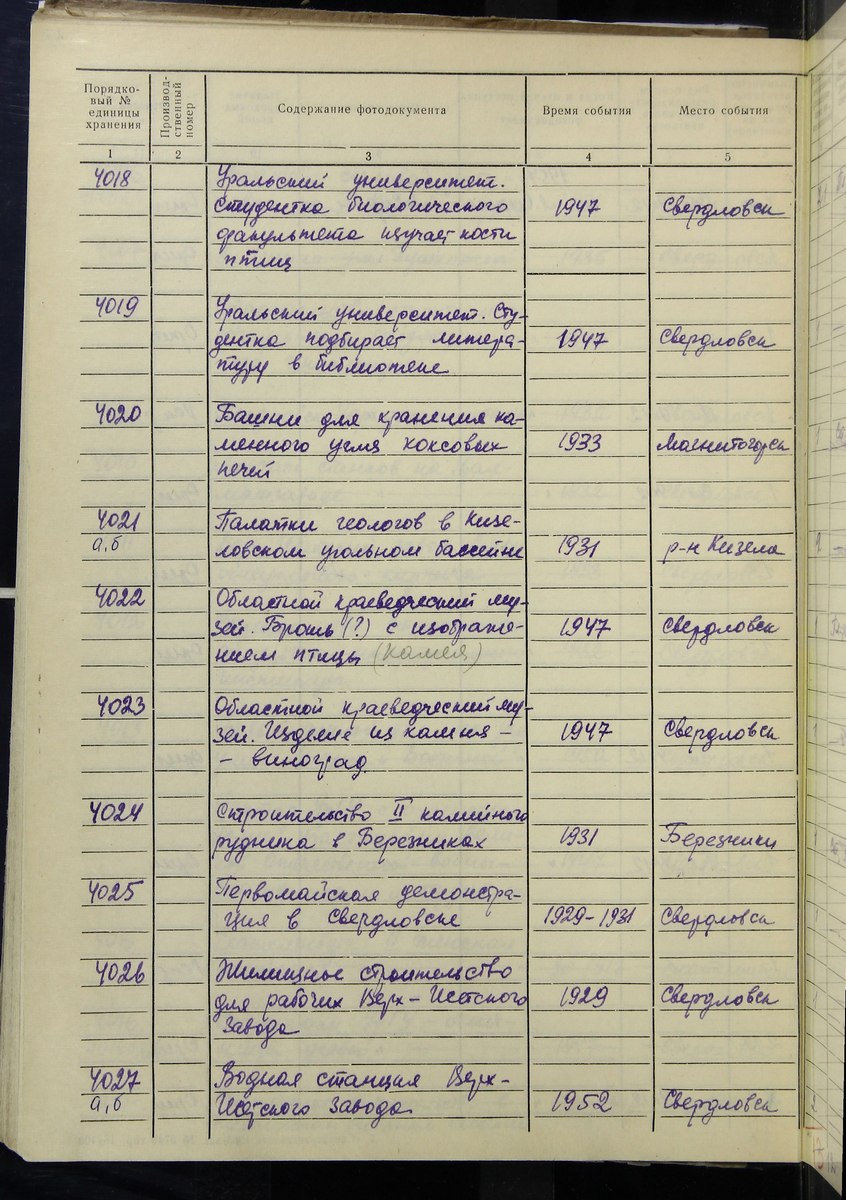 Порядко-
вый №
единицы
хранения
Производ-
ственный
номер
Содержание фотодокумента
Время события
Место события
1 2 3 4 5
4018 Уральский университет.
Студентка биологического 1947 Свердловск
факультета изучает кости
птиц
4019 Уральский университет. Сту-
дентка подбирает литера- 1947 Свердловск
туру в библиотеке
4020 Башни для хранения ка-
менного угля коксовых 1933 Магнитогорск
печей
4021 Палатки геологов в Кизе-
а,б ловском угольном бассейне 1931 р-н Кизела
4022 Областной краеведческий му-
зей. Брошь (?) с изображе- 1947 Свердловск
нием птицы (камея)
4023 Областной краеведческий му-
зей. Изделие из камня – 1947 Свердловск
– виноград.
4024 Строительство II калийного
рудника в Березниках 1931 Березники
4025 Первомайская демонстра-
ция в Свердловске 1929-1931 Свердловск
4026 Жилищное строительство
для рабочих Верх-Исетского 1929 Свердловск
завода
4027 Водная станция Верх-
а,б Исетского завода. 1952 Свердловск